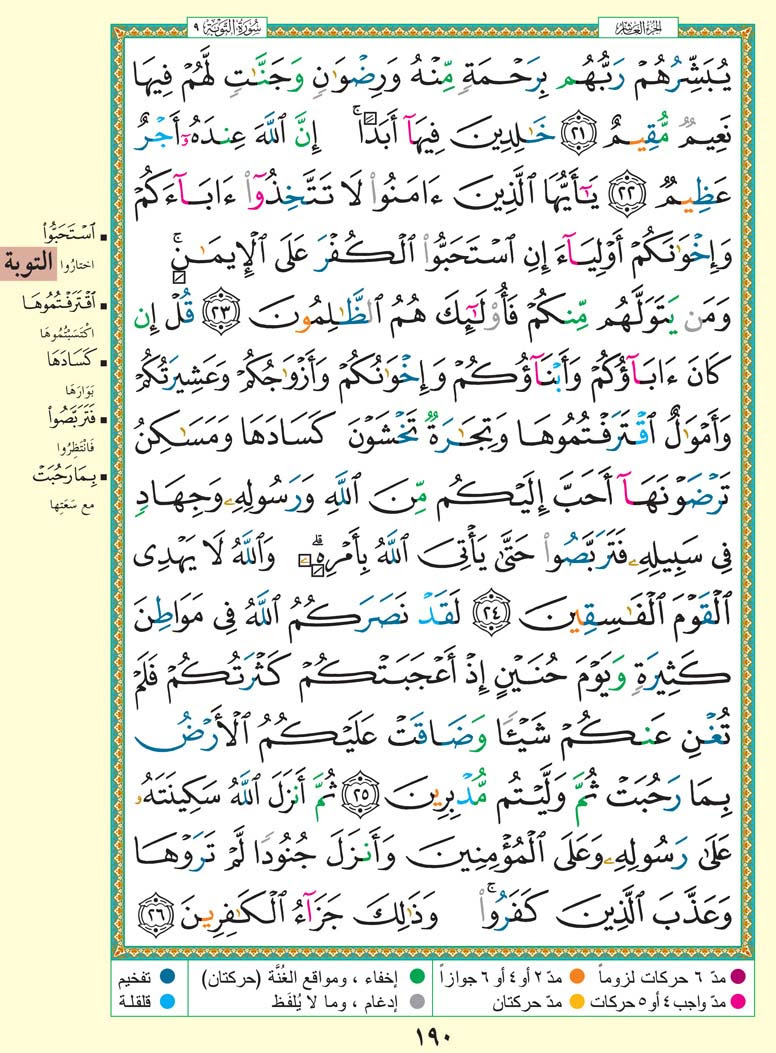 الجزء العاشر
سورة التوبة ٩
يُبَشِّرُهُمْ رَبُّهُم بِرَحْمَةٍ مِّنْهُ وَرِضْوَٰنٍ وَجَنَّٰتٍ لَّهُمْ فِيهَا
نَعِيمٌ مُّقِيمٌ ٢١ خَٰلِدِينَ فِيهَآ أَبَدًا ۚ إِنَّ ٱللَّهَ عِندَهُۥٓ أَجْرٌ
عَظِيمٌ ٢٢ يَٰٓأَيُّهَا ٱلَّذِينَ ءَامَنُوا۟ لَا تَتَّخِذُوٓا۟ ءَابَآءَكُمْ
وَإِخْوَٰنَكُمْ أَوْلِيَآءَ إِنِ ٱسْتَحَبُّوا۟ ٱلْكُفْرَ عَلَى ٱلْإِيمَٰنِ ۚ
وَمَن يَتَوَلَّهُم مِّنكُمْ فَأُو۟لَٰٓئِكَ هُمُ ٱلظَّٰلِمُونَ ٢٣ قُلْ إِن
كَانَ ءَابَآؤُكُمْ وَأَبْنَآؤُكُمْ وَإِخْوَٰنُكُمْ وَأَزْوَٰجُكُمْ وَعَشِيرَتُكُمْ
وَأَمْوَٰلٌ ٱقْتَرَفْتُمُوهَا وَتِجَٰرَةٌ تَخْشَوْنَ كَسَادَهَا وَمَسَٰكِنُ
تَرْضَوْنَهَآ أَحَبَّ إِلَيْكُم مِّنَ ٱللَّهِ وَرَسُولِهِۦ وَجِهَادٍ
فِى سَبِيلِهِۦ فَتَرَبَّصُوا۟ حَتَّىٰ يَأْتِىَ ٱللَّهُ بِأَمْرِهِۦ ۗ وَٱللَّهُ لَا يَهْدِى
ٱلْقَوْمَ ٱلْفَٰسِقِينَ ٢٤ لَقَدْ نَصَرَكُمُ ٱللَّهُ فِى مَوَاطِنَ
كَثِيرَةٍ وَيَوْمَ حُنَيْنٍ إِذْ أَعْجَبَتْكُمْ كَثْرَتُكُمْ فَلَمْ
تُغْنِ عَنكُمْ شَيْـًٔا وَضَاقَتْ عَلَيْكُمُ ٱلْأَرْضُ
بِمَا رَحُبَتْ ثُمَّ وَلَّيْتُم مُّدْبِرِينَ ٢٥ ثُمَّ أَنزَلَ ٱللَّهُ سَكِينَتَهُۥ
عَلَىٰ رَسُولِهِۦ وَعَلَى ٱلْمُؤْمِنِينَ وَأَنزَلَ جُنُودًا لَّمْ تَرَوْهَا
وَعَذَّبَ ٱلَّذِينَ كَفَرُوا۟ ۚ وَذَٰلِكَ جَزَآءُ ٱلْكَٰفِرِينَ ٢٦
ٱسْتَحَبُّوا۟
اختارُوا
التوبة
ٱقْتَرَفْتُمُوهَا
اكْتَسَبْتُمُوهَا
كَسَادَهَا
بَوَارَهَا
فَتَرَبَّصُوا۟
فَانْتَظِرُوا
بِمَا رَحُبَتْ
مع سَعَتِها
مدّ ٦ حركات لزوماً
مدّ ٢ أو ٤ أو ٦ جوازاً
إخفاء ، ومواقع الغُنَّة (حركتان)
تفخيم
مدّ واجب ٤ أو ٥ حركات
مدّ حركتان
إدغام ، وما لا يُلفَظ
قلقلة
١٩٠